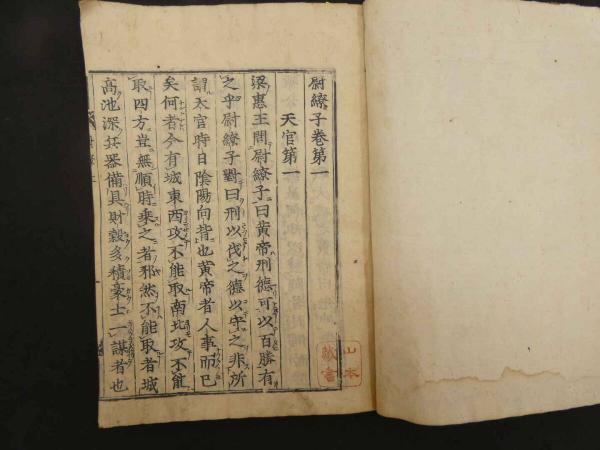 尉繚子卷第一
天官第一
梁惠王問尉繚子曰黃帝刑德可以百勝有
之乎尉繚子對曰刑以伐之德以守之非所
謂天官時日陰陽向背也黃帝者人事而已
矣何者今有城東西攻不能取南北攻不能
取四方豈無順時乘之者邪然不能取者城
高池深兵器備具財穀多積豪士一謀者也
山本
藏書